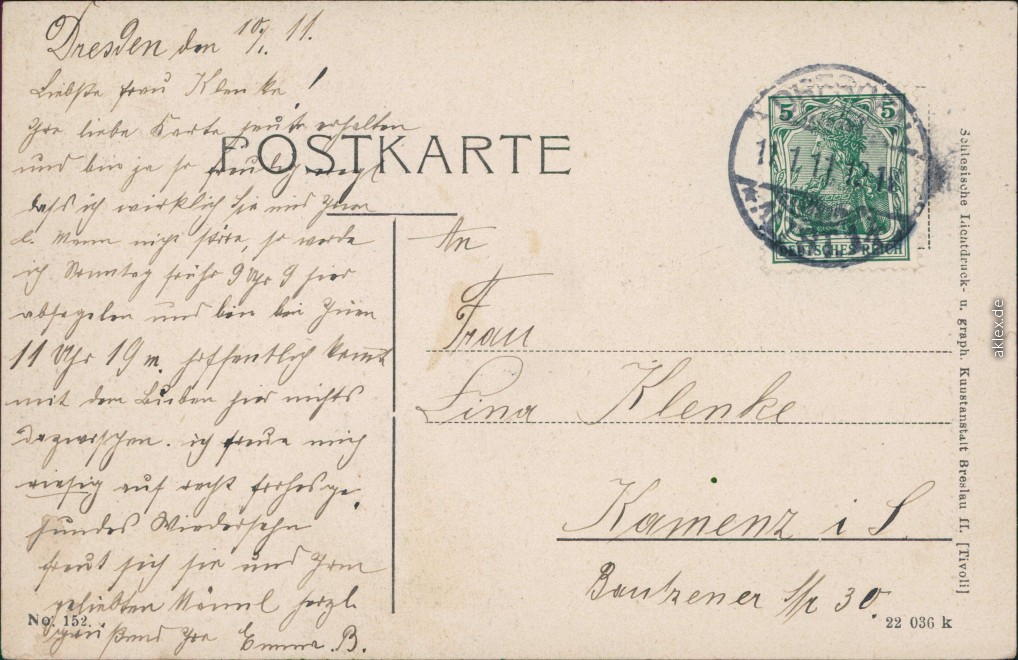 Dresden den 10/1. 11.
Liebste Frau Klenke!
Ihre liebe Karte heute erhalten
und bin ja so
dass ich wirklich Sie und Ihren
l. Mann nicht störe, so werde
ich Sonntag früh 9 Uhr 9 hier
absegeln und bin bei Ihnen
11 Uhr 19 m. hoffentlich kommt
mit dem Buben hier nichts
dazwischen. ich freue mich
riesig auf recht frohes ge
sundes Wiedersehn
freut sich sie und Ihren
geliebten Männl herzl.
grüßend Ihre Emma B.
POSTKARTE
5 5
DEUTSCHES REICH
An
Frau
Lina Klenke
Kamenz i S.
Bautzener Str 30.
No. 152.
22 036 k
Schlesische Lichtdruck- u. graph. Kunstanstalt Breslau II. [Tivoli]
aklex.de